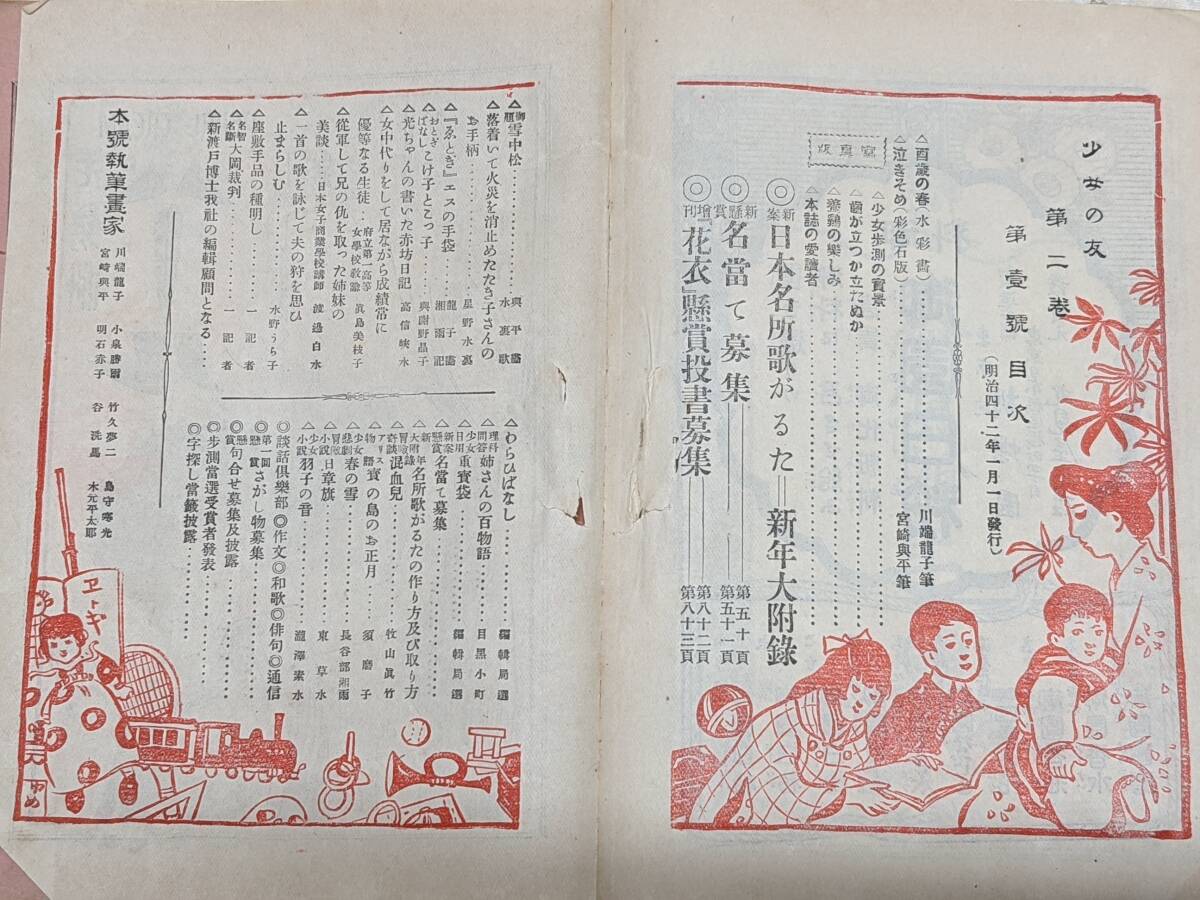 少女の友
第二卷
第壹號目次
(明治四十二年一月一日發行)
寫眞版
△酉歳の春(水彩畫)‥‥‥‥川端龍子筆
△泣きそめ(彩色石版)‥‥‥‥宮崎與平筆
△少女歩測の實景‥‥‥‥
△齒が立つか立たぬか‥‥‥‥
△養鷄の樂しみ‥‥‥‥
△本誌の愛讀者‥‥‥‥
◎新案日本名所歌がるた＝新年大附錄
◎新懸賞名當て募集――第五十頁 第五十一頁
◎增刊『花衣』懸賞投書募集――第八十二頁 第八十三頁
△御題雪中松‥‥‥‥與平畫 水裏歌
△落着いて火災を消止めたたき子さんのお手柄‥‥‥‥星野水裏
△『ゑとぎ』エスの手袋‥‥‥‥龍子畫 湘雨記
△おとぎばなしこけ子とこっ子‥‥‥‥與謝野晶子
△光ちやんの書いた赤坊日記‥‥‥‥高信峽水
△女中代りをして居ながら成績常に
優等なる生徒‥‥府立第一高等女學校教諭 眞島美枝子
△從軍して兄の仇を取った姉妹の
美談‥‥‥‥日本女子商業學校講師 渡邊白水
△一首の歌を詠じて夫の狩を思ひ
止まらしむ‥‥‥‥水野うら子
△座敷手品の種明し‥‥‥‥一記者
△名智名斷大岡裁判‥‥‥‥一記者
△新渡戸博士我社の編輯顧問となる‥‥
△わらひばなし‥‥‥‥編輯局選
△理科問答姉さんの百物語‥‥‥‥目黒小町
△少女日用重寳袋‥‥‥‥編輯局選
△新案懸賞名當て募集‥‥‥‥
△新年大附錄名所歌がるたの作り方及び取り方
△冒險奇談混血兒‥‥‥‥牧山眞竹
△アリス物語寳の島のお正月‥‥‥‥須磨子
△少女悲劇春の雪‥‥‥‥長谷部湘雨
△冒險小説日章旗‥‥‥‥東草水
△少女小説羽子の音‥‥‥‥瀧澤素水
◎談話俱樂部◎作文◎和歌◎俳句◎通信
◎第一回懸賞さがし物募集‥‥‥‥
◎懸賞句合せ募集及披露‥‥‥‥
◎歩測當選受賞者發表‥‥‥‥
◎字探し當籤披露‥‥‥‥
本號執筆畫家
川端龍子 小泉勝爾 竹久夢二 島守寒光
宮崎與平 明石赤子 谷洗馬 木元平太郎
ヱトキ
ゆめ